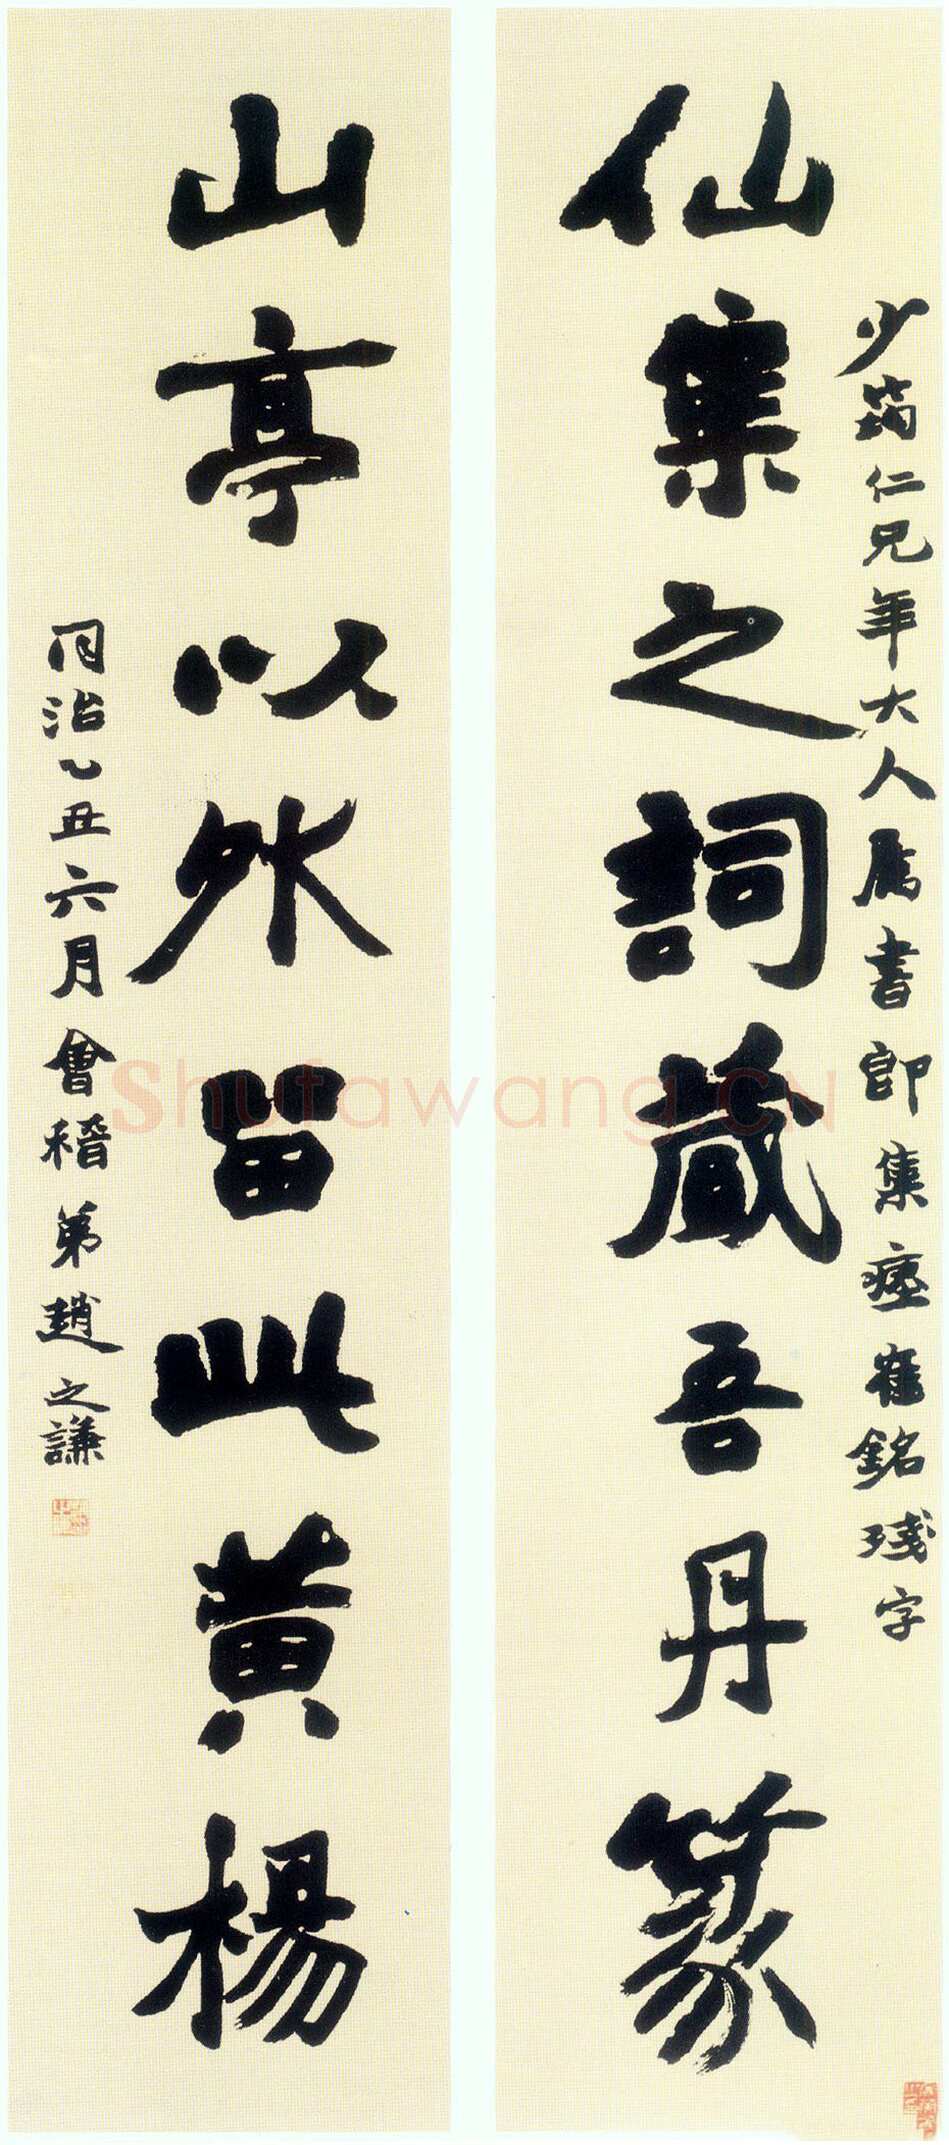 少筠仁兄年大人属書即集瘗隺銘殘字
仙集之詞藏吾丹篆
山亭以外留此黄楊
同治乙丑六月會稽弟趙之謙
Shufawang.CN